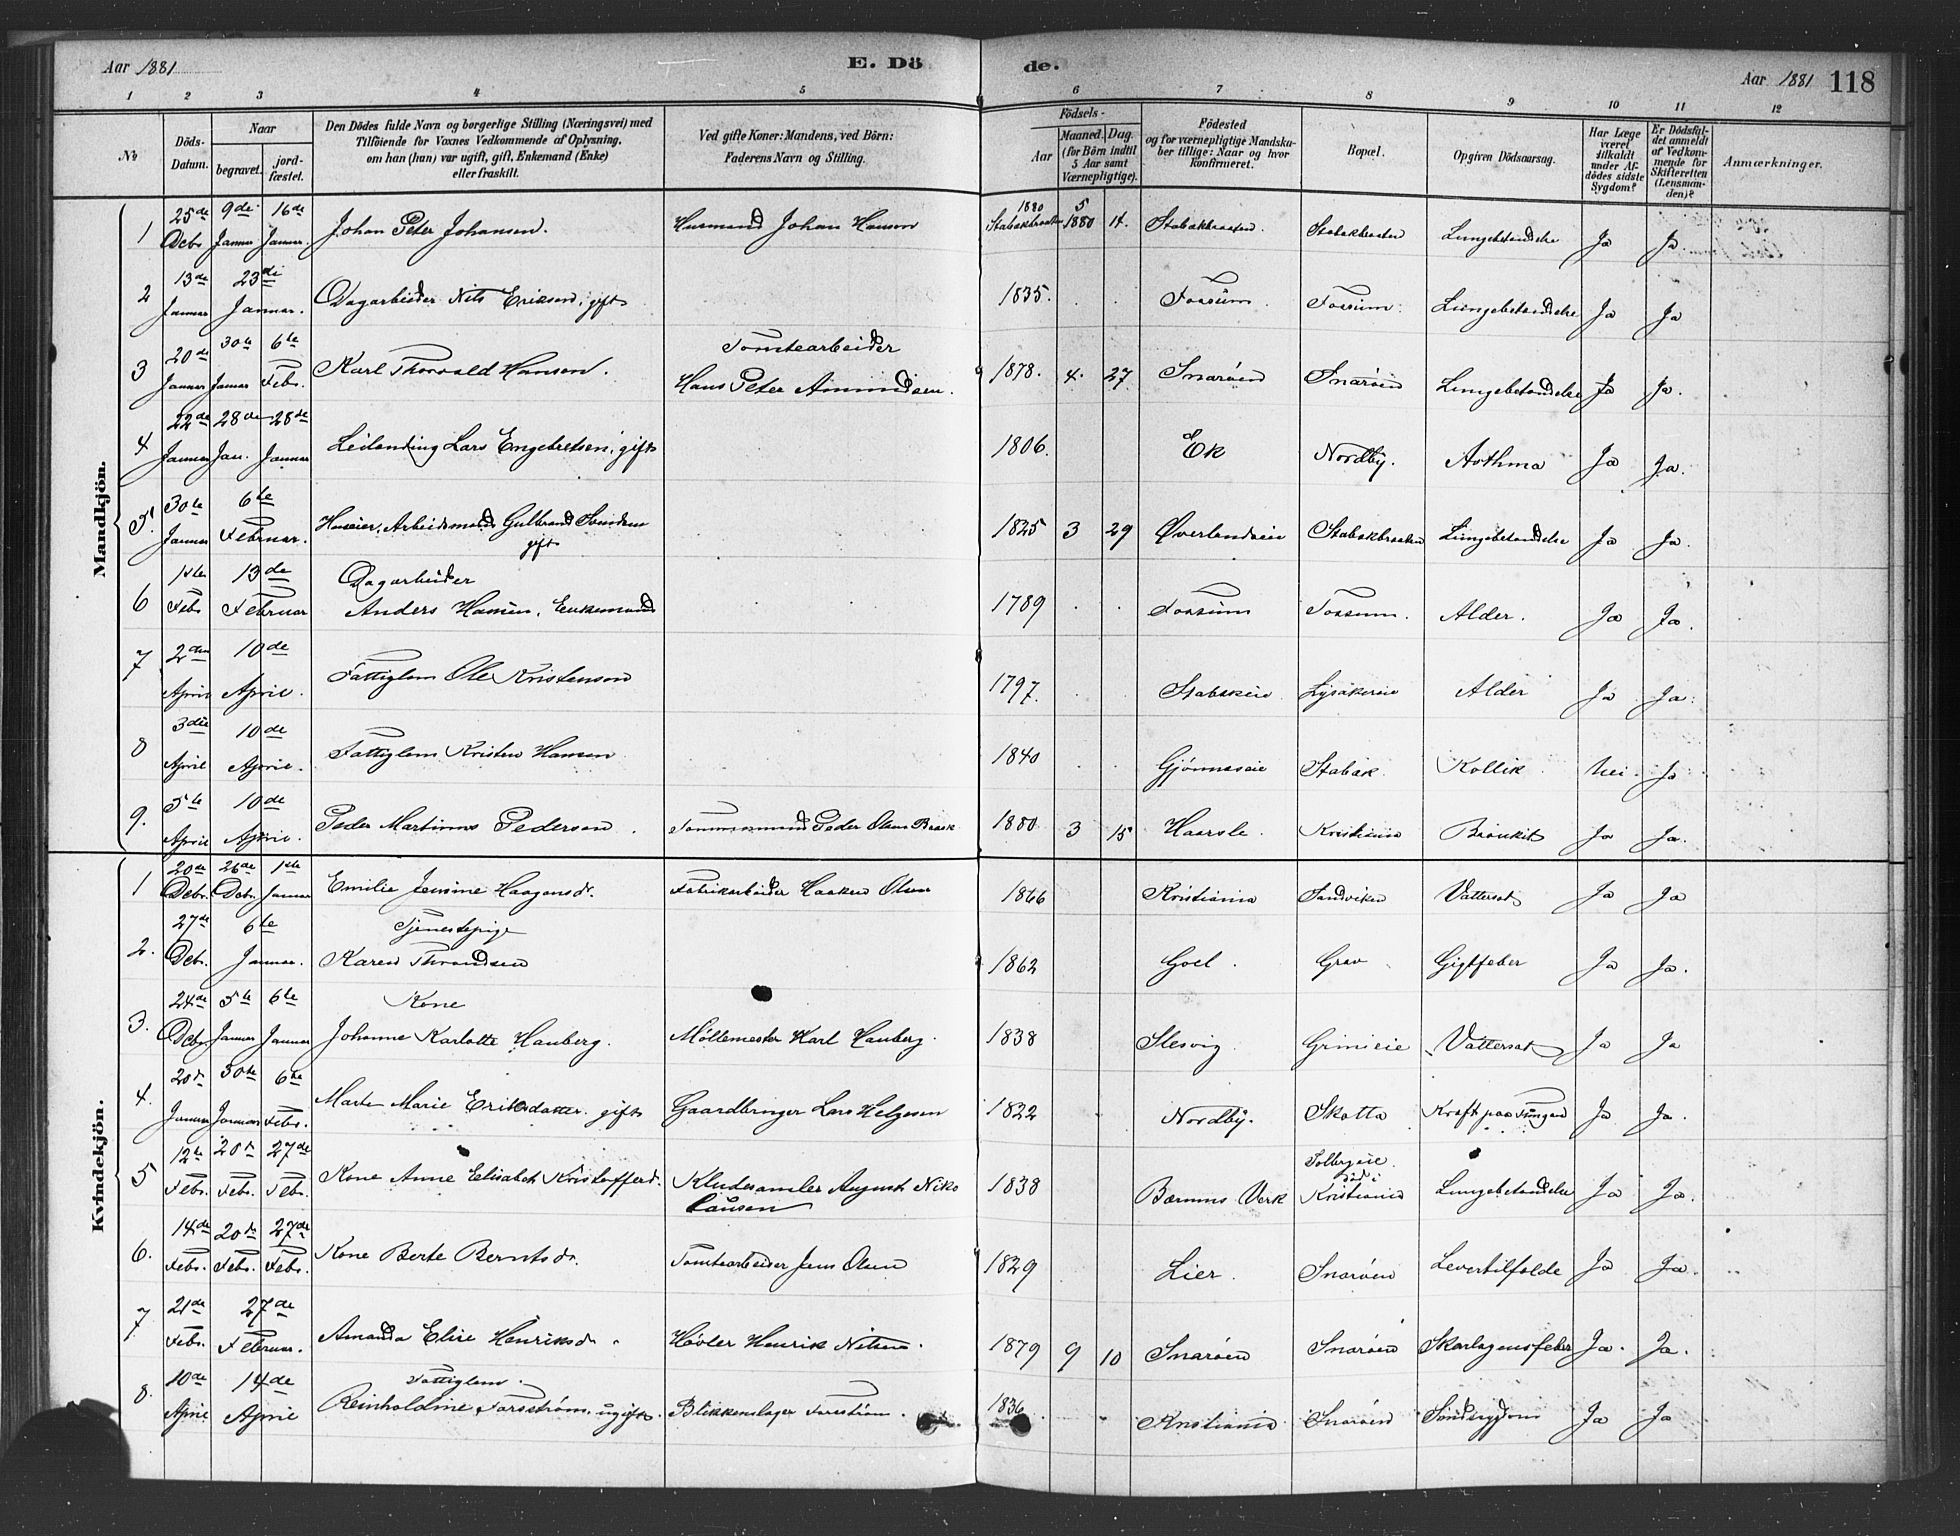 Aar 1881 E. Dö de. Aar 1881 118
1 2 3 4 5 6 7 8 9 10 11 12
No
Döds-Datum.
Naar begravet. jordfæstet.
Den Dödes fulde Navn og borgerlige Stilling (Næringsvei) med Tilföiende for Voxnes Vedkommende af Oplysning, om han (hun) var ugift, gift, Enkemand (Enke) eller fraskilt.
Ved gifte Koner: Mandens, ved Börn: Faderens Navn og Stilling.
Födsels-
Aar
Maaned. Dag. (for Börn indtil 5 Aar samt Værnepligtige).
Födested og for værnepligtige Mandskaber tillige: Naar og hvor konfirmeret.
Bopæl.
Opgiven Dödsaarsag.
Har Læge været tilkaldt under Afdödes sidste Sygdom?
Er Dödsfaldet anmeldt af Vedkommende for Skifteretten (Lensmanden)?
Anmærkninger.
Mandkjön.
1 25de Debr. 9de Januar 16de Januar Johan Peter Johansen. Husmand Johan Hansen 1880 5 14. Stabækbraaten. Stabækbraaten Lungebetændelse Ja Ja
2 13de Januar 23di Januar. Dagarbeider Nils Eriksen, gift 1835. Fossum. Fossum. Lungebetændelse Ja Ja
3 20de Januar 30te Januar 6te Febr. Karl Thorvald Hansen. Tomtearbeider Hans Peter Amundsen. 1878. 4. 27. Snarøen Snarøen Lungebetændelse Ja Ja.
4 22de Januar 28de Jan. 28de Januar Leilending Lars Engebretsen, gift 1806. Ek Nordby. Asthma Ja Ja.
5 30te Januar 6te Februar. Huseier, Arbeidsmand Gulbrand Svendsen gift 1825 3 29 Øverlandseie Stabækbraaten Lungebetændelse Ja Ja.
6 1ste Febr 13de Februar Dagarbeider Anders Hansen, Enkemand 1789 Fossum Fossum. Alder. Ja Ja.
7 2den April 10de April. Fattiglem Ole Kristensen 1797. Stabækeie Lysakereie Alder Ja Ja.
8 3die April 10de April. Fattiglem Kristen Hansen 1840 Gjønneseie Stabæk. Kollik. Nei. Ja
9. 5te April 10de April. Peder Martinus Pedersen. Tømmermand Peder Olsen Braak 1880 3 15 Haarsle. Kristiania Bronkit Ja Ja.
Kvindekjön.
1 20de Debr. 26de Debr. 1ste Januar Emilie Jensine Haagensdr. Fabrikarbeider Haaken Olsen 1866 Kristiania Sandviken Vattersot Ja Ja
2. 27de Debr. 6te Januar. Tjenestepige Karen Throndsen 1862 Goel. Grav Gigtfeber Ja Ja.
3. 24de Debr. 5te Januar 6te Januar Kone Johanne Karlotte Hauberg. Møllemester Karl Hauberg. 1838 Slesvig. Grinieie Vattersot Ja Ja
4. 20de Januar 30te Januar 6te Febr. Marte Marie Eriksdatter gift Gaardbruger Lars Helgesen 1822 Nordby. Skotta Kræft paa Tungen Ja Ja.
5 12te Febr. 20de Febr. 27de Febr. Kone Anne Elisabet Kristoffersd. Kludesamler August Nikolausen 1838 Bærums Verk Solbergeie. Død i Kristiania Lungebetændelse Ja Ja.
6. 14de Febr. 20de Febr. 27de Febr. Kone Berte Berntsdr. Tomtearbeider Jens Olsen 1829 Lier. Snarøen Levertilfælde Ja Ja.
7. 21de Febr. 27de Februar. Amanda Elise Henriksdr. Høvler Henrik Nilsen. 1879 9 10 Snarøen Snarøen Skarlagensfeber Ja. Ja.
8. 10de April 14de April Fattiglem. Reinholdine Forsstrøm, ugift. Blikkenslager Forsstrøm. 1836 Kristiania Snarøen Sindssygdom Ja Ja